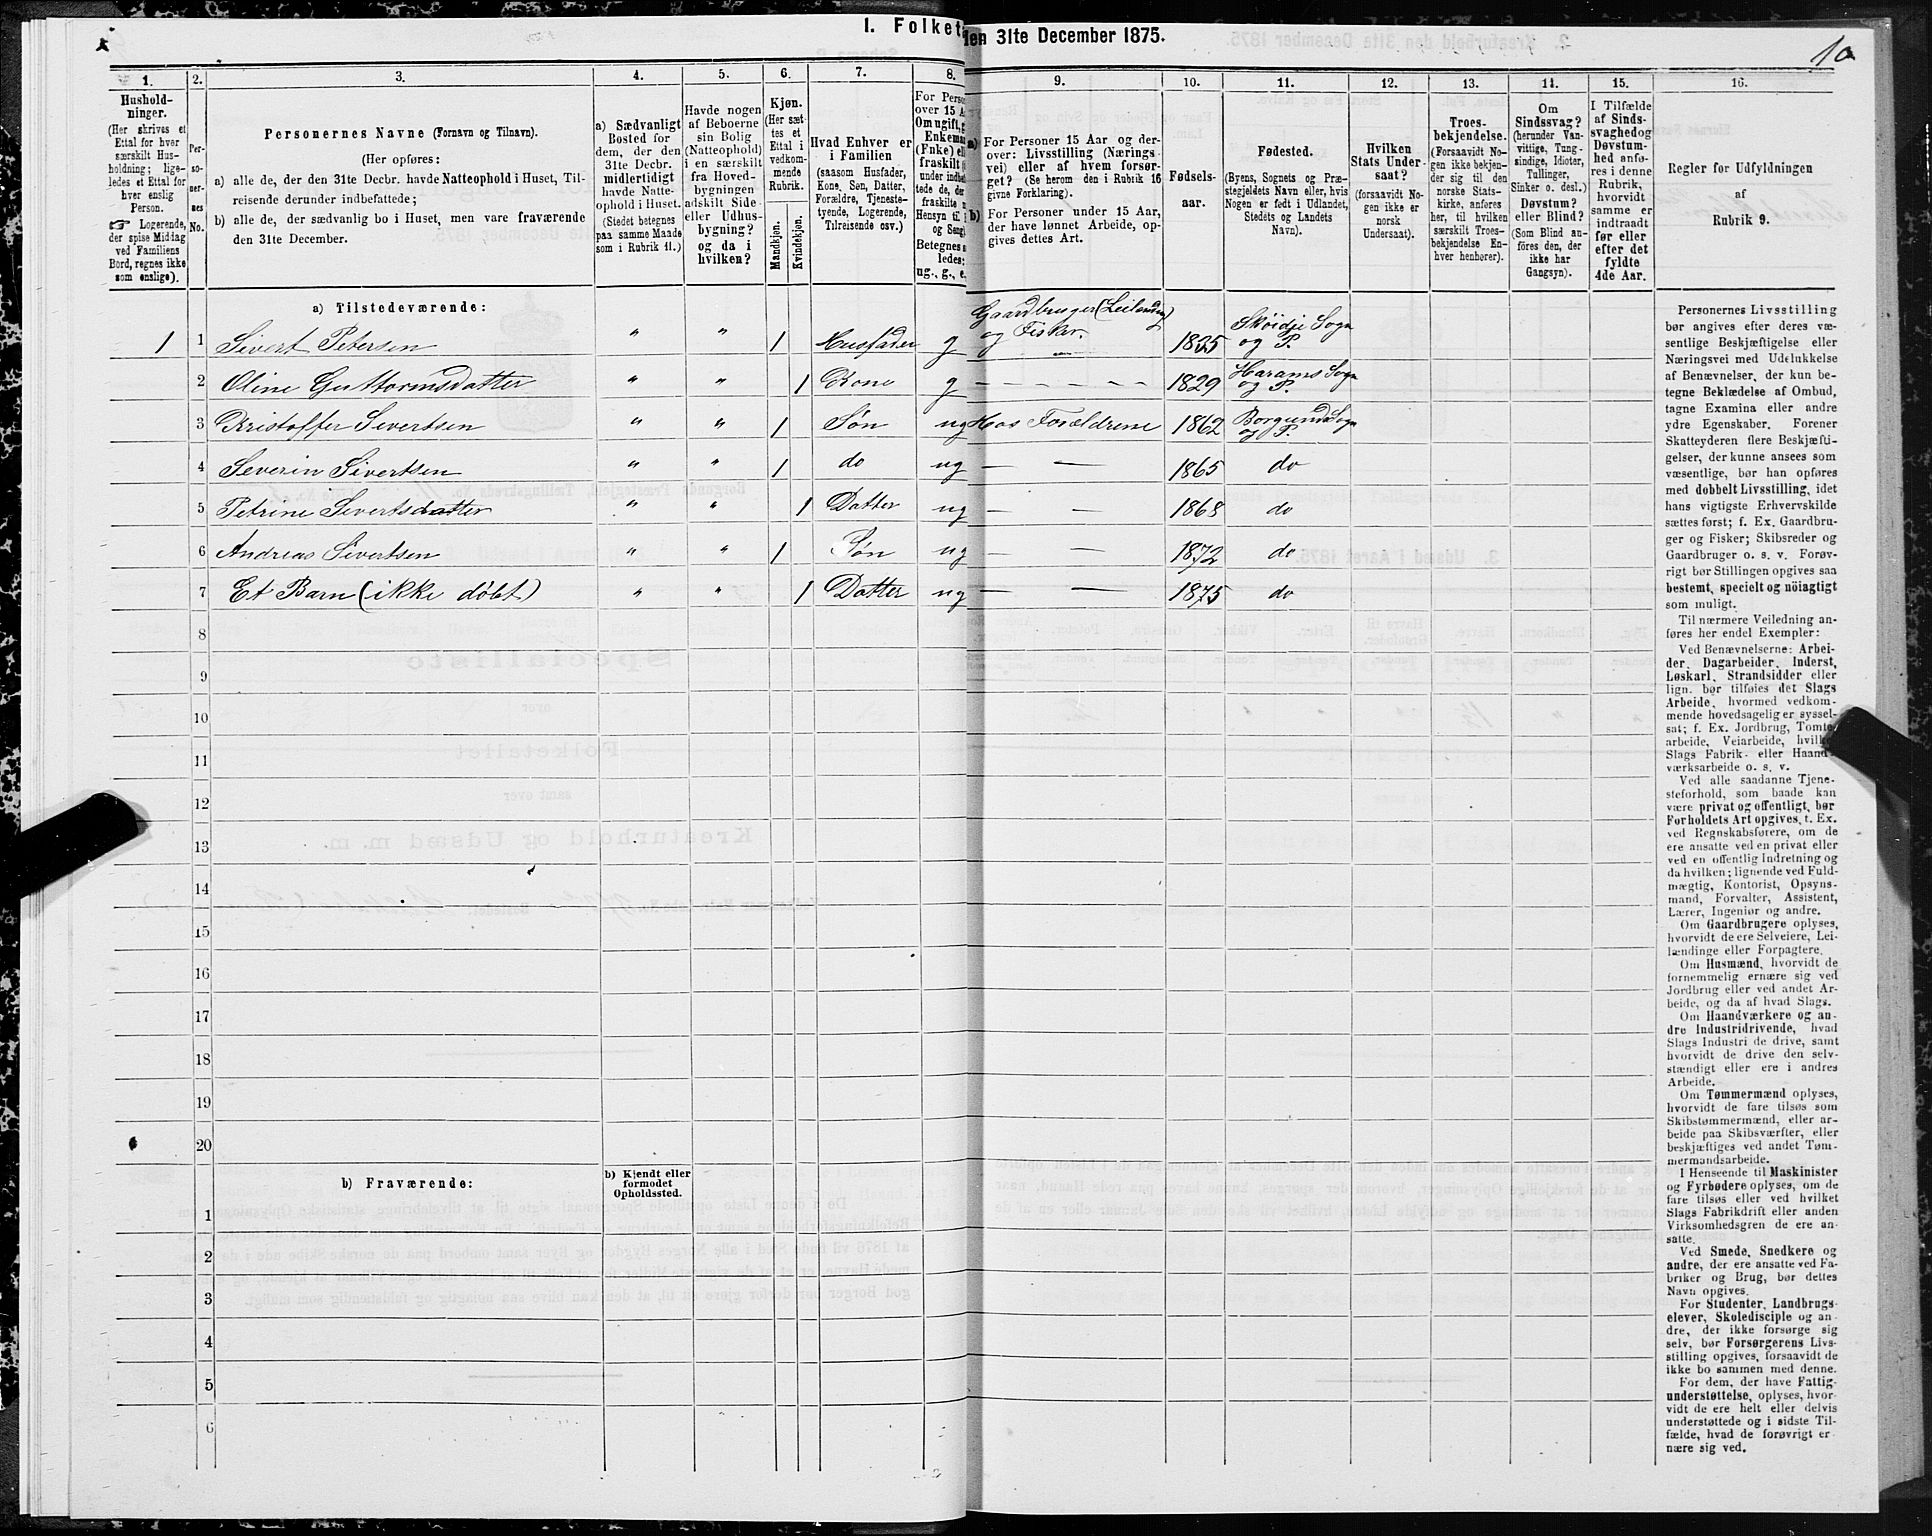 1. Folketæ
den 31te December 1875.
10
1.
2.
3.
4.
5.
6.
7.
8.
9.
10.
11.
12.
13.
14.
15.
16.
Hushold-
ninger.
(Her skrives et
Ettal for hver
særskilt Hus-
holdning; lige-
ledes et Ettal for
hver enslig
Person.
Logerende,
der spise Middag
ved Familiens
Bord, regnes ikke
som enslige).
Per-
so-
ner-
nes
No.
Personernes Navne (Fornavn og Tilnavn).
(Her opføres:
a) alle de, der den 31te Decbr. havde Natteophold i Huset, Til-
reisende derunder indbefattede;
b) alle de, der sædvanlig bo i Huset, men vare fraværende
den 31te December.
a) Sædvanligt
Bosted for
dem, der den
31te Decbr.
midlertidigt
havde Natte-
ophold i Huset.
(Stedet betegnes
paa samme Maade
som i Rubrik 11.)
Havde nogen
af Beboerne
sin Bolig
(Natteophold)
i en særskilt
fra Hoved-
bygningen
adskilt Side-
eller Udhus-
bygning?
og da i
hvilken?
Kjøn.
(Her sæt-
tes et
Ettal i
vedkom-
mende
Rubrik.
Mandkjøn.
Kvindekjøn.
Hvad Enhver er
i Familien
(saasom Husfader,
Kone, Søn, Datter,
Forældre, Tjeneste-
tyende, Logerende,
Tilreisende osv.)
For Perso
over 15 A
Om ugift, g
Enkemar
(Fnke) ell
fraskilt
under indbe
tede de, der
fraskilte
Hensyn til
og Seng
Betegnes s
ledes:
ug., g., e.
a) For Personer 15 Aar og der-
over: Livsstilling (Nærings-
vei) eller af hvem forsør-
get? (Se herom den i Rubrik 16
givne Forklaring).
b) For Personer under 15 Aar,
der have lønnet Arbeide, op-
gives dettes Art.
Fødsels-
aar.
Fødested.
(Byens, Sognets og Præ-
stegjeldets Navn eller, hvis
Nogen er født i Udlandet,
Stedets og Landets
Navn).
Hvilken
Stats Under-
saat?
(forsaavidt No-
gen ikke er
norsk
Undersaat).
Troes-
bekjendelse.
(Forsaavidt No-
gen ikke bekjen-
der sig til den
norske Stats-
kirke, anføres
her, til hvilken
særskilt Troes-
bekjendelse En-
hver henhører).
Om
Sindssvag?
(herunder Van-
vittige, Tung-
sindige, Idioter,
Tullinger,
Sinker o. desl.)
Døvstum?
eller Blind?
(Som Blind an-
føres den, der
ikke har
Gangsyn).
I Tilfælde
af Sinds-
svaghed og
Døvstum-
hed anfø-
res i denne
Rubrik,
hvorvidt
samme er
indtraadt
før eller
efter det
fyldte
4de Aar.
Regler for Udfyldningen
af
Rubrik 9.
a) Tilstedeværende:
1 1 Sivert Petersen " " 1 Husfader g Gaardbruger (Leilending) og Fisker. 1835 Sköidje Sogn og P.
2 Oline Guttormsdatter " " 1 Kone g — — — 1829 Harams Sogn og P.
3 Kristoffer Sivertsen " " 1 Søn ug Hos Forældrene 1862 Borgunds Sogn og P.
4 Severin Sivertsen " " 1 do ug — — 1865 do
5 Petrine Sivertsdatter " " 1 Datter ug — — 1868 do
6 Andreas Sivertsen " " 1 Søn ug — — 1872 do
7 Et Barn (ikke döbt) " " 1 Datter ug — — 1875 do
8
9
10
11
12
13
14
15
16
17
18
19
20
b) Fraværende:
b) Kjendt eller
formodet
Opholdssted.
1
2
3
4
5
6
Personernes Livsstilling
bør angives efter deres væ-
sentlige Beskjæftigelse eller
Næringsvei med Udelukkelse
af Benævnelser, der kun be-
tegne Beklædelse af Ombud,
tagne Examina eller andre
ydre Egenskaber. Forener
Skatteyderen flere Beskjæfti-
gelser, der kunne ansees som
væsentlige, bør han opføres
med dobbelt Livsstilling, idet
hans vigtigste Erhvervskilde
sættes først; f. Ex. Gaardbru-
ger og Fisker; Skibsreder og
Gaardbruger o. s. v. Forøv-
rigt bør Stillingen opgives saa
bestemt, specielt og nöiagtigt
som muligt.
Til nærmere Veiledning an-
føres her endel Exempler:
Ved Benævnelserne: Arbei-
der, Dagarbeider, Inderst,
Løskarl, Strandsidder eller
lign. bør tilføies det Slags
Arbeide, hvormed vedkom-
mende hovedsagelig er syssel-
sat; f. Ex. Jordbrug, Tomte-
arbeide, Veiarbeide, hvilket
Slags Fabrik- eller Haand-
værksarbeide o. s. v.
Ved alle saadanne Tjene-
steforhold, som baade kan
være privat og offentligt, bør
Forholdets Art opgives, t. Ex.
ved Regnskabsførere, om de
ere ansatte ved en privat eller
ved en offentlig Indretning og
da hvilken; lignende ved Fuld-
mægtig, Kontorist, Opsyns-
mand, Forvalter, Assistent,
Lærer, Ingeniør og andre.
Om Gaardbrugere oplyses,
hvorvidt de ere Selveiere, Lei-
lændinge eller Forpagtere.
Om Husmænd, hvorvidt de
fornemmelig ernære sig ved
Jordbrug eller ved andet Ar-
beide, og da af hvad Slags.
Om Haandværkere og an-
dre Industridrivende, hvad
Slags Industri de drive, samt
hvorvidt de drive den selv-
stændigt eller ere i andres
Arbeide.
Om Tømmermænd oplyses,
hvorvidt de fare tilsøs som
Skibstømmermænd, eller ar-
beide paa Skibsværfter, eller
beskjæftiges ved andet Tøm-
mermandsarbeide.
I Henseende til Maskinister
og Fyrbødere oplyses, om de
fare tilsøs eller ved hvilket
Slags Fabrikdrift eller anden
Virksomhedsgren de ere an-
satte.
Ved Smede, Snedkere og
andre, der ere ansatte ved Fa-
briker og Brug, bør dettes
Navn opgives.
For Studenter, Landbrugs-
elever, Skoledisciple og an-
dre, der ikke forsørge sig
selv, bør Forsørgerens Livs-
stilling opgives, forsaavidt de
ikke bo sammen med denne.
For dem, der have Fattig-
understøttelse, oplyses, hvor-
vidt de ere helt eller delvis
understøttede og i sidste Til-
fælde, hvad de forøvrigt er-
nære sig ved.